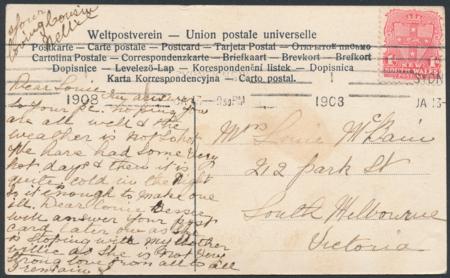 your
loving cousin
Nellie
Weltpostverein – Union postale universelle
Postkarte – Carte postale – Postcard – Tarjeta Postal – Открытое письмо
Cartolina Postale – Correspondenzkarte – Briefkaart – Brevkort – Brefkort
Dopisnice – Levelező-Lap – Korespondenční listek – Dopisnica
Karta Korrespondencyjna – Carto postal.
NEW
WALES
1908
1908
JA 13
Dear Louie
In answer
to your PC. hoping you
are all well & the
weather is not so hot
We have had some very
hot days & then it is
quite cold in the night
it is enough to make one
ill. Dear Louie Bessie
will answer your post
card later on as she
is stoping with my Mother
Willie as she is not very
strong love from all to all
I remain
Mrs Louie McBain
212 Park St
South Melbourne
Victoria